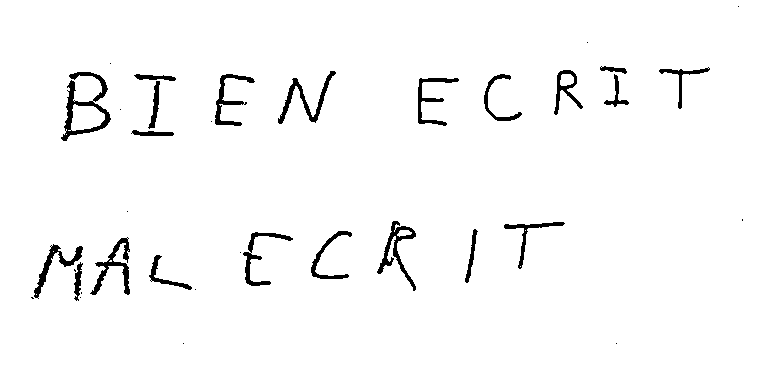 BIEN ECRIT
MAL ECRIT